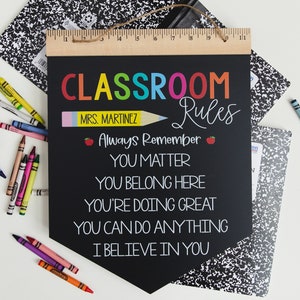 CLASSROOM
Rules
MRS. MARTINEZ
Always Remember
YOU MATTER
YOU BELONG HERE
YOU'RE DOING GREAT
YOU CAN DO ANYTHING
I BELIEVE IN YOU